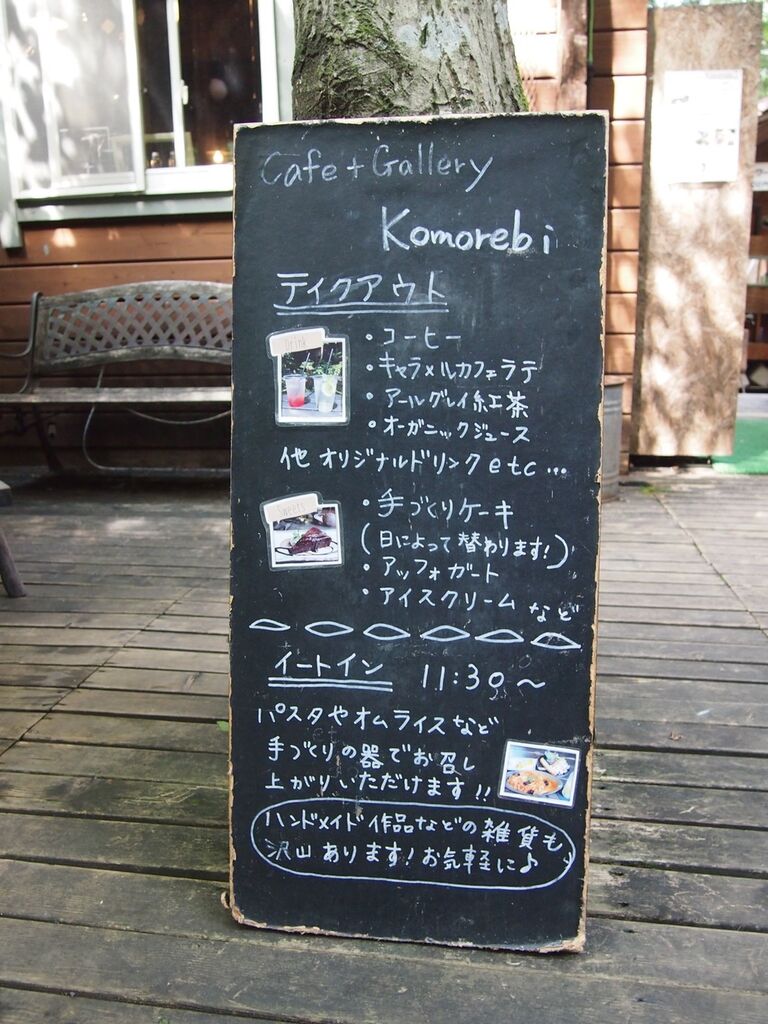 Cafe + Gallery
Komorebi
テイクアウト
Drink
・コーヒー
・キャラメルカフェラテ
・アールグレイ紅茶
・オーガニックジュース
他 オリジナルドリンク etc...
Sweets
・手づくりケーキ
(日によって替わります!)
・アッフォガート
・アイスクリーム など
イートイン 11:30〜
パスタやオムライスなど
手づくりの器でお召し
上がりいただけます!!
ハンドメイド作品などの雑貨も
沢山あります!お気軽に♪